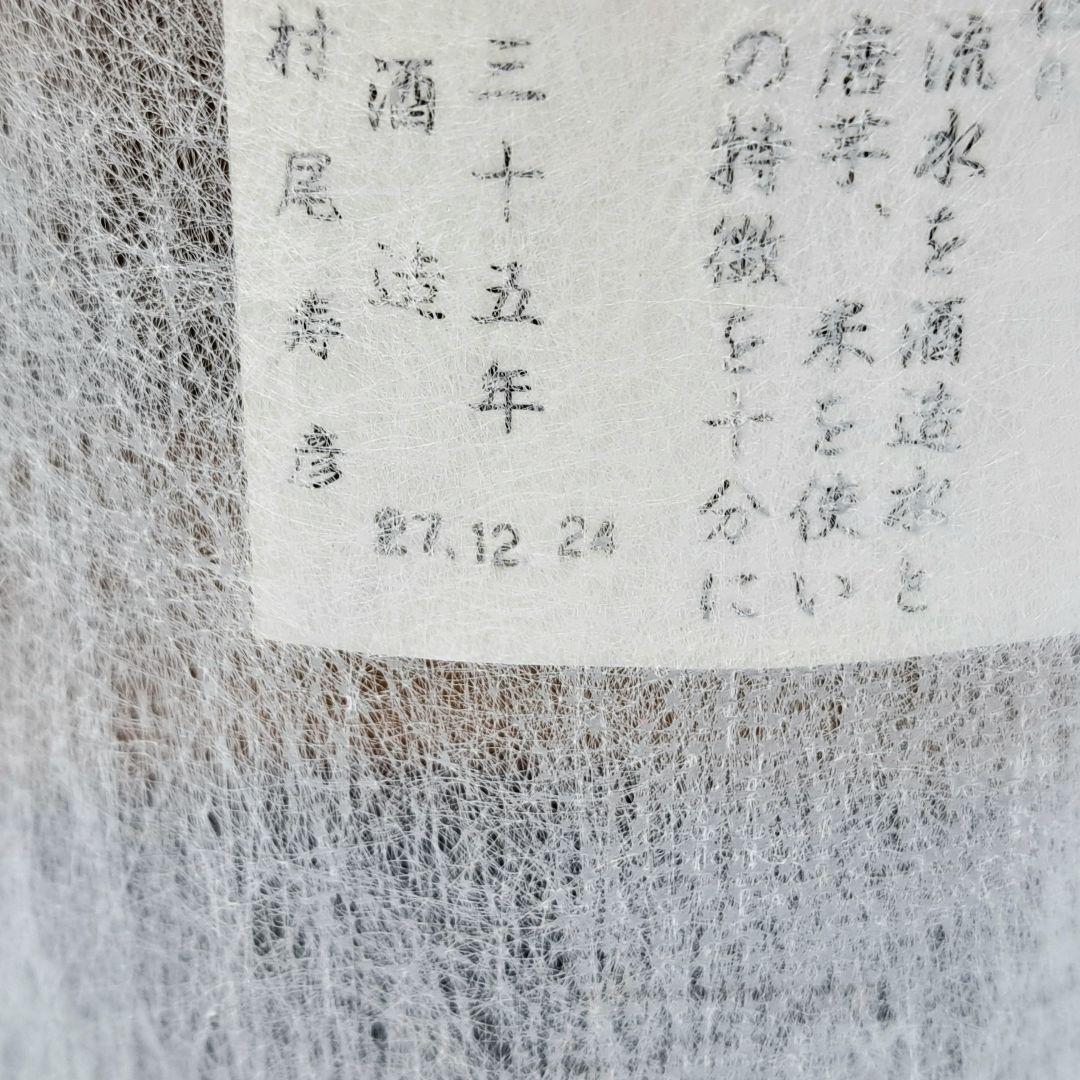 流水を酒造水と
唐芋、米を使い
の特徴を十分に
三十五年
酒造
村尾寿彦
27.12 24